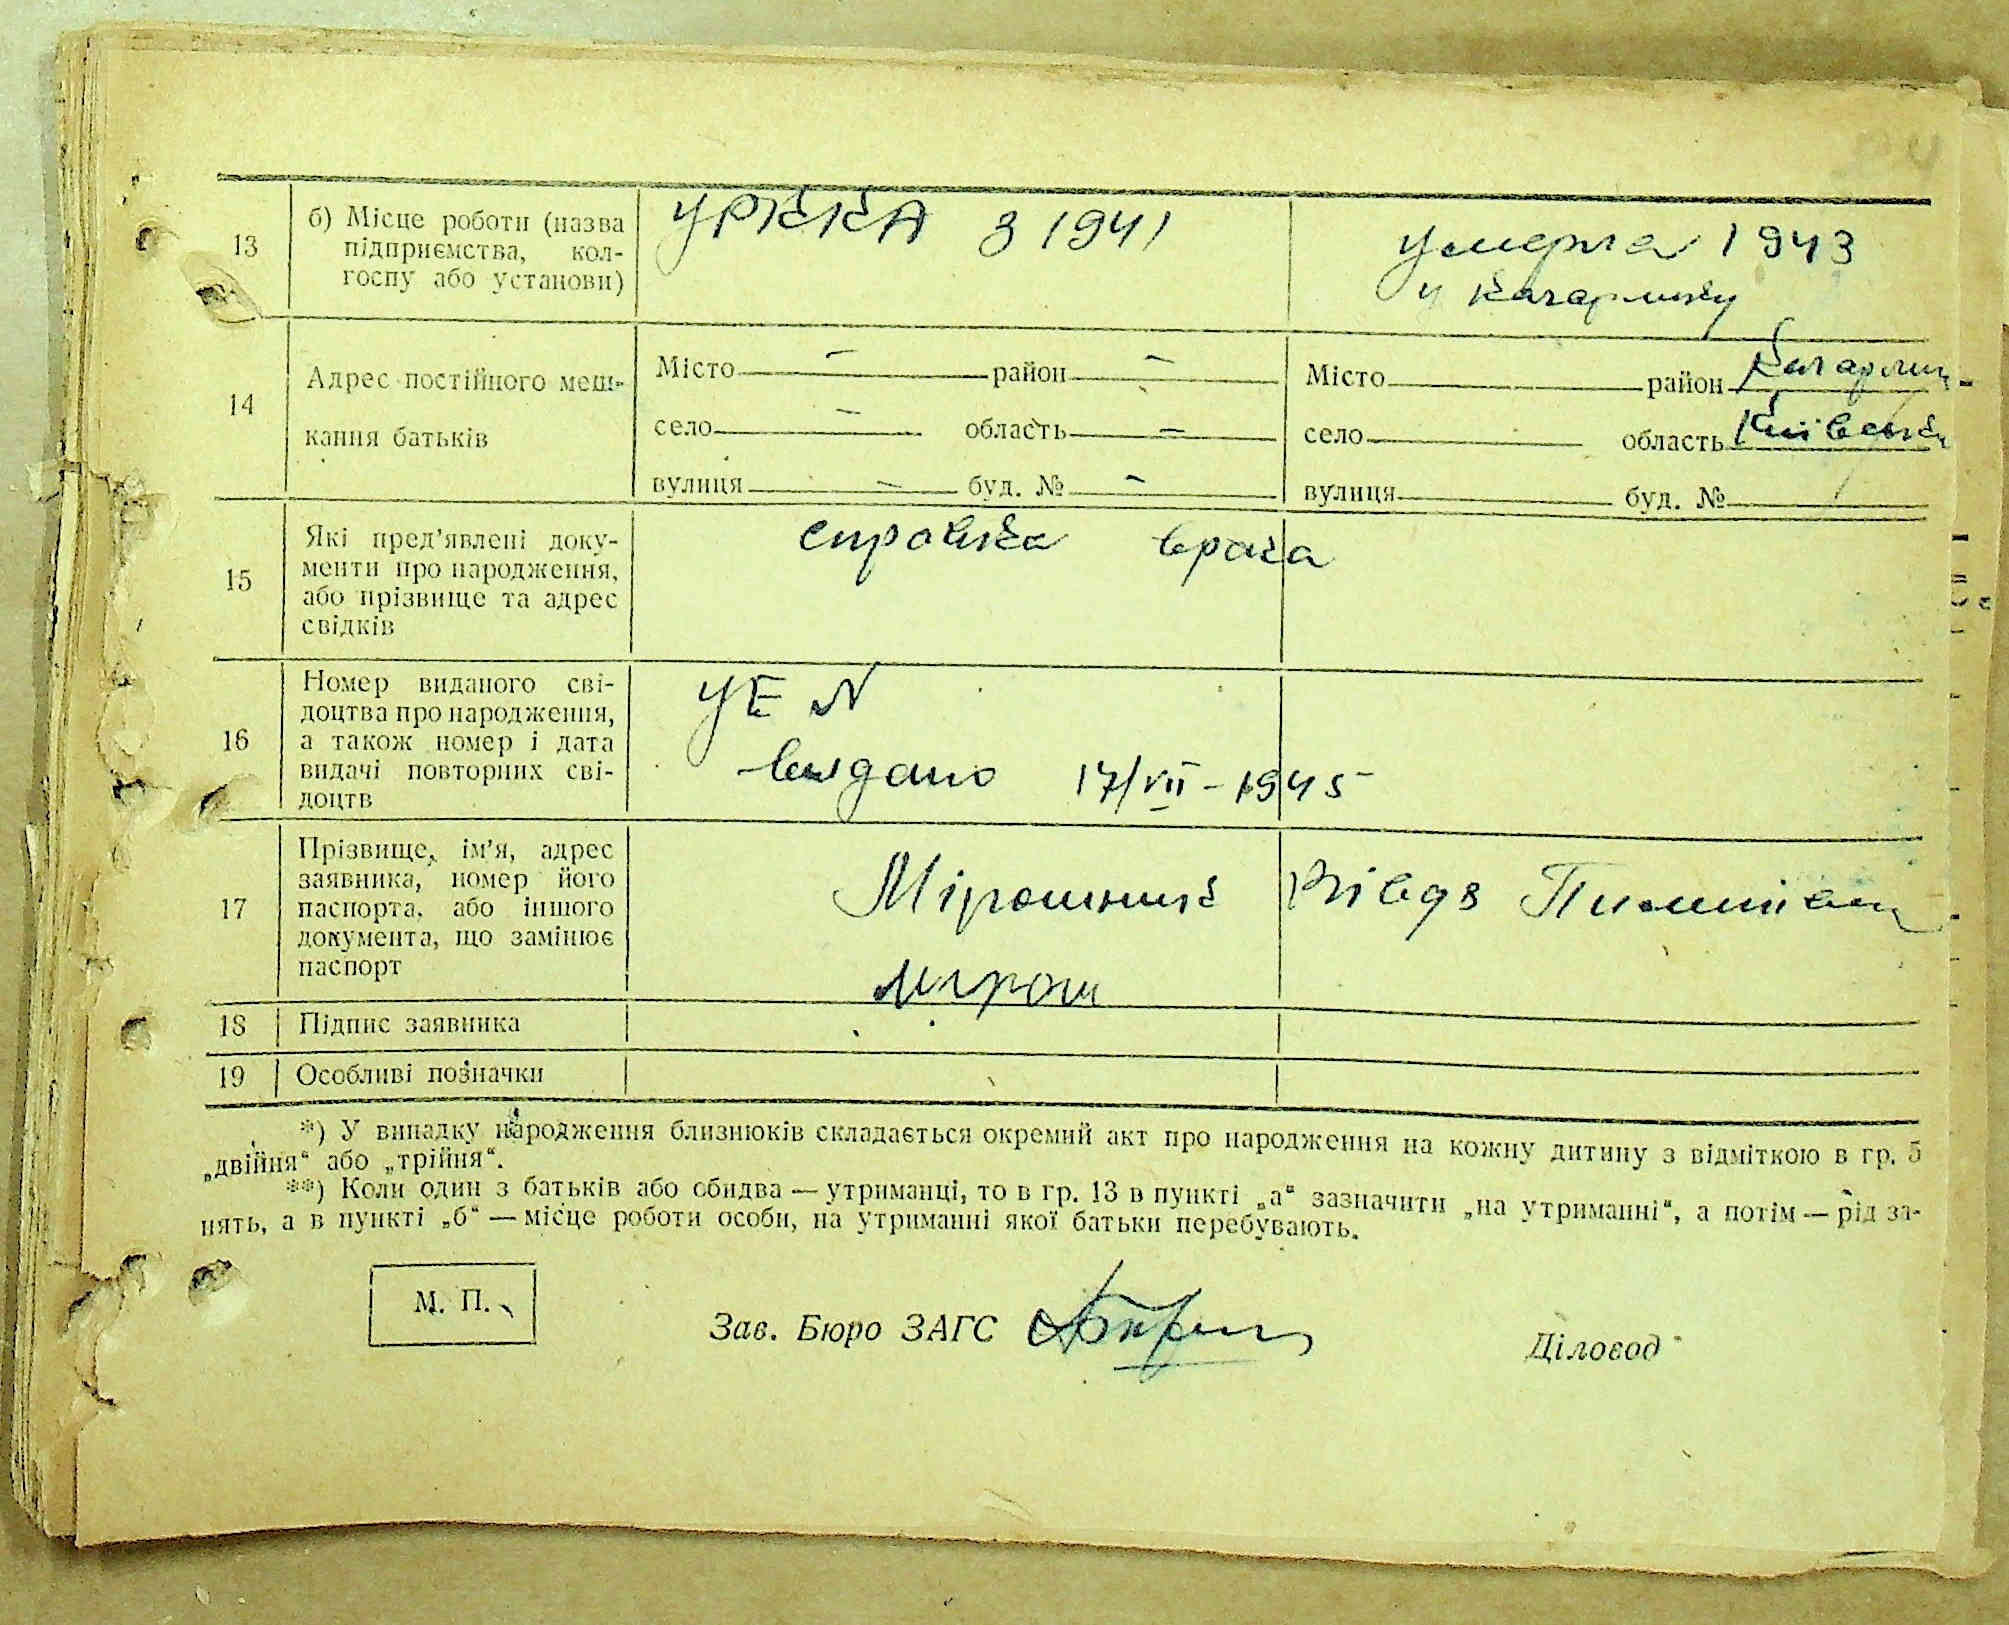 13
б) Місце роботи (назва
підприємства, кол-
госпу або установи)
У РККА з 1941
умерла 1943
у Кагарлику
14
Адрес постійного меш-
кання батьків
Місто — район —
село — область —
вулиця — буд. № —
Місто район Кагарлиц-
село область Київська
вулиця буд. №
15
Які пред’явлені доку-
менти про народження,
або прізвище та адрес
свідків
справка врача
16
Номер виданого сві-
доцтва про народження,
а також номер і дата
видачі повторних сві-
доцтв
УЕ №
выдано 17/VII - 1945
17
Прізвище, ім’я, адрес
заявника, номер його
паспорта, або іншого
документа, що замінює
паспорт
Мірошник
Мірош
18
Підпис заявника
19
Особливі позначки
*) У випадку народження близнюків складається окремий акт про народження на кожну дитину з відміткою в гр. 5
„двійня“ або „трійня“.
**) Коли один з батьків або обидва — утриманці, то в гр. 13 в пункті „а“ зазначити „на утриманні“, а потім — рід за-
нять, а в пункті „б“ — місце роботи особи, на утриманні якої батьки перебувають.
М. П.
Зав. Бюро ЗАГС
Діловод